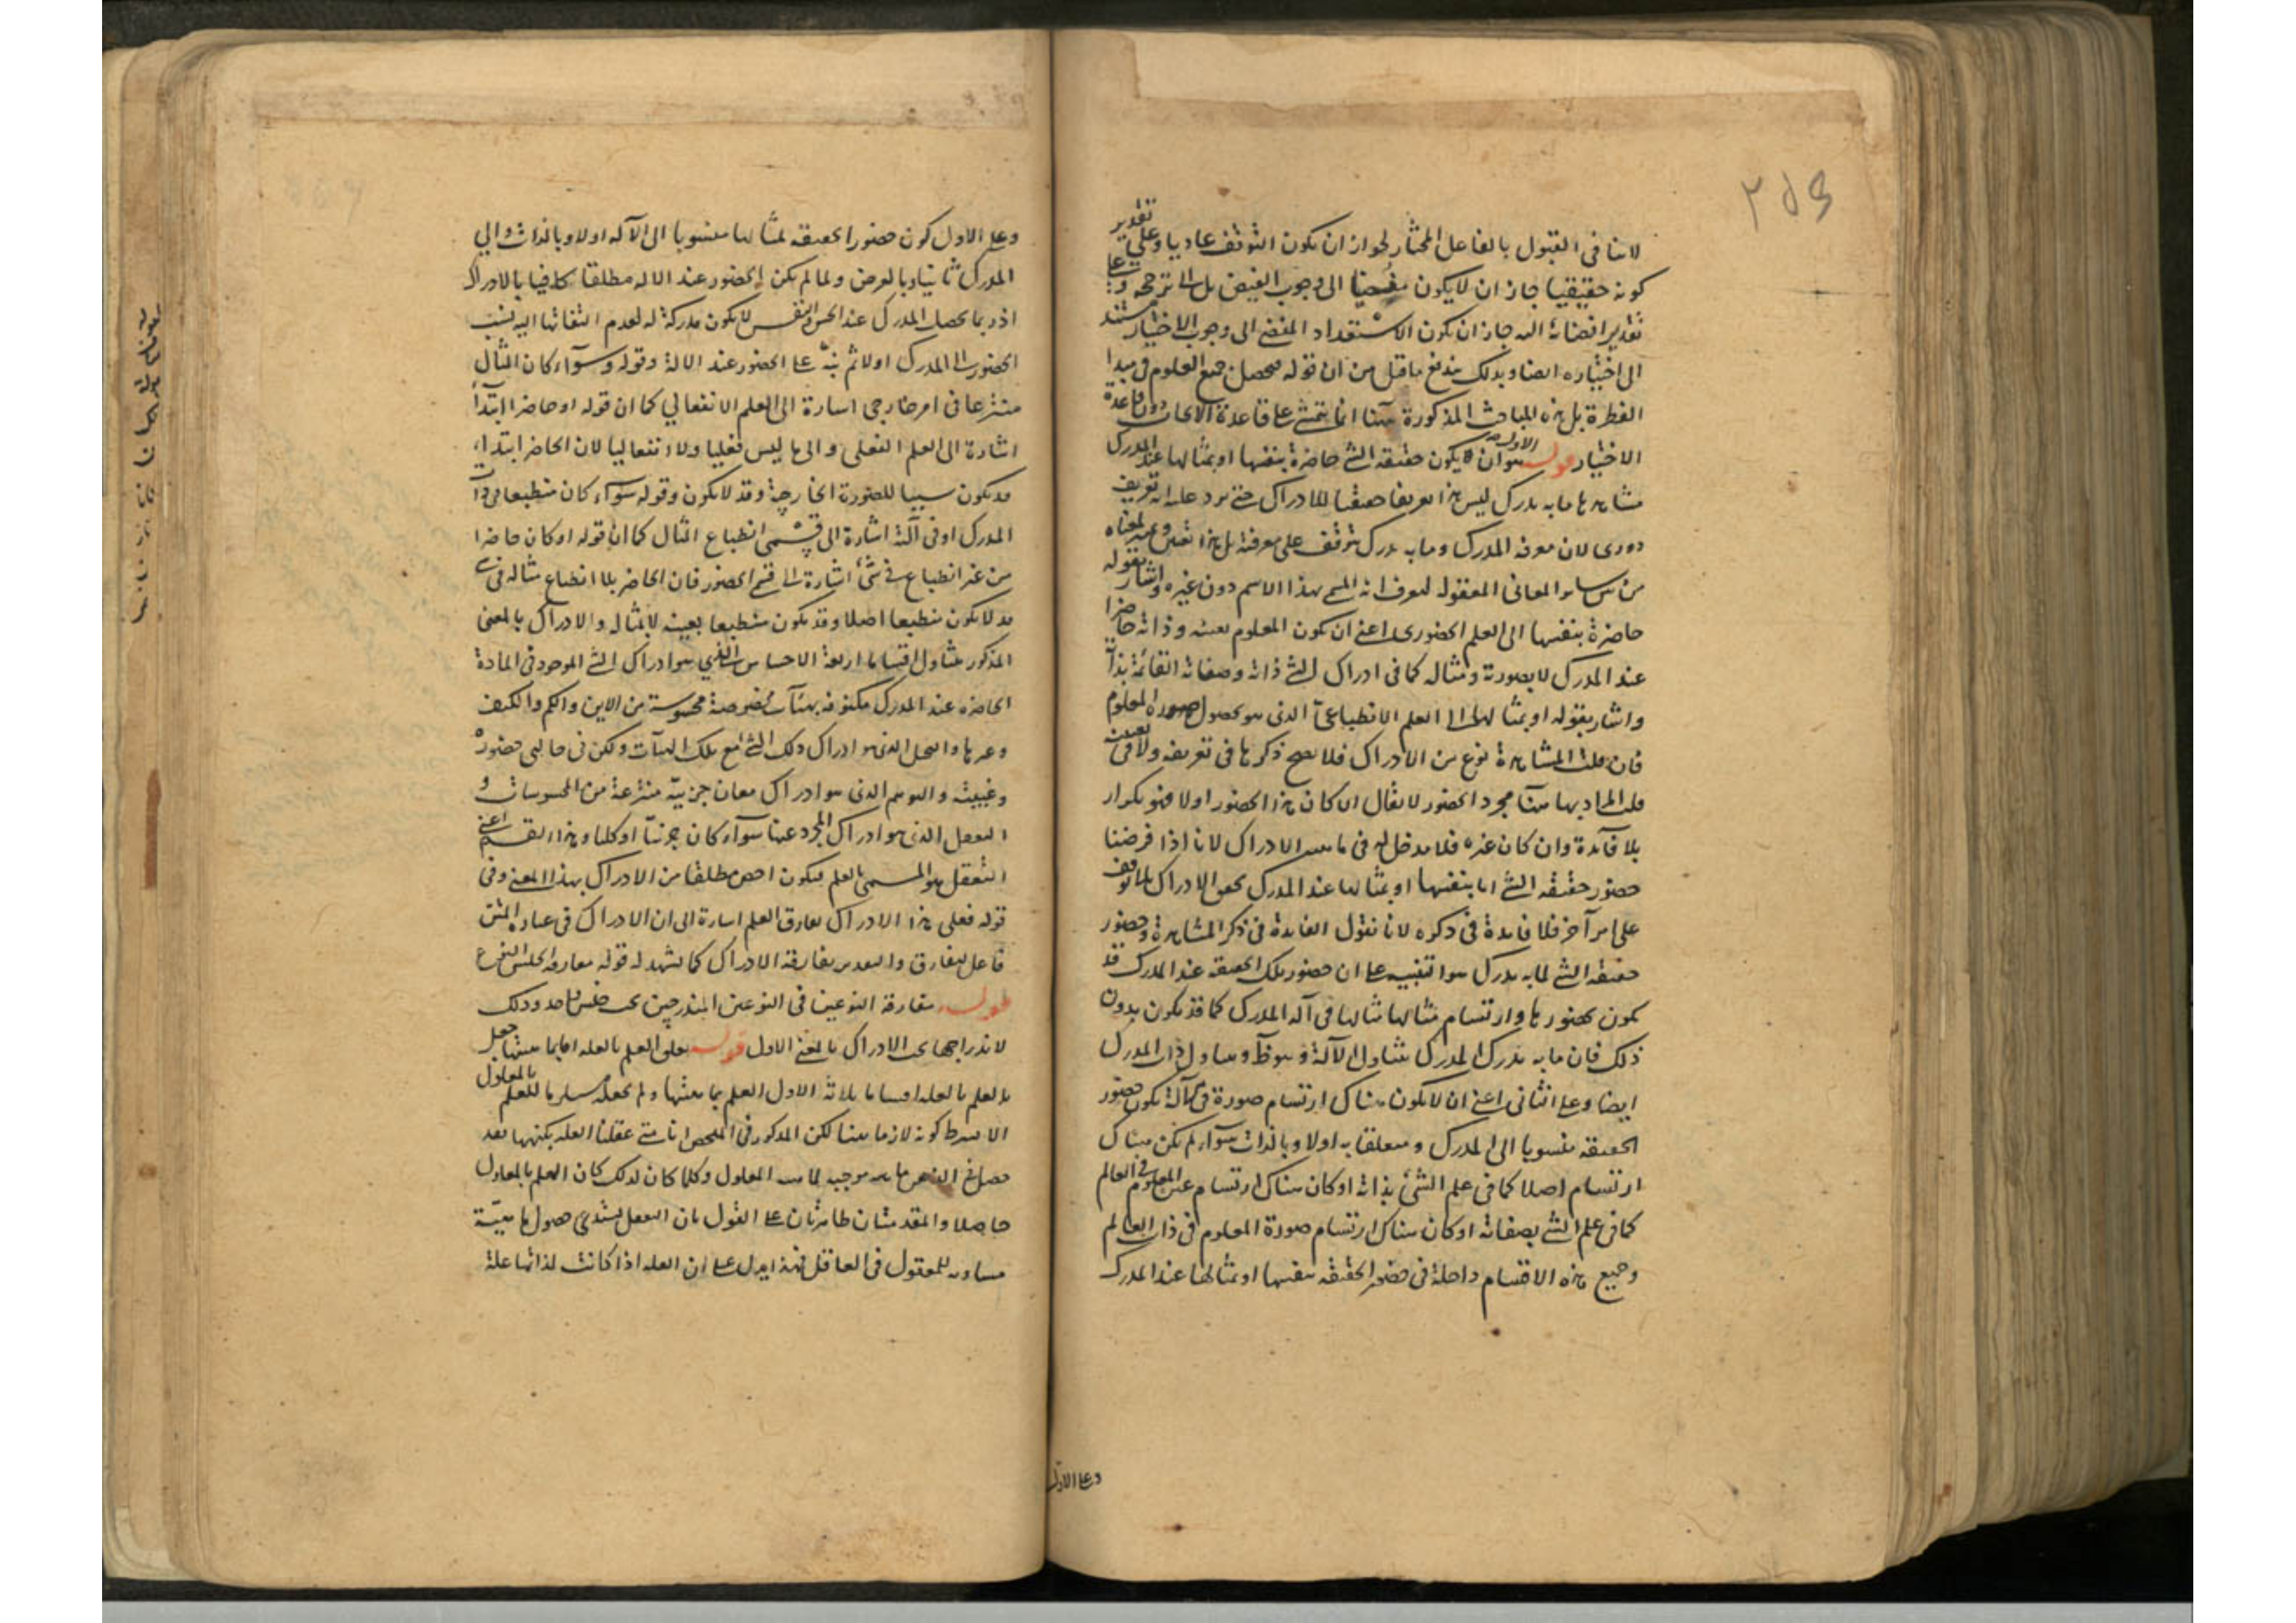 لاينافى القبول بالفاعل المختار لجواز ان يكون التوقف عاديا وعلى تقدير
كونه حقيقيا جاز ان لايكون مفضيا الى وجوب الفيض بل الى ترجحه وعلى
تقدير افضائه اليه جاز ان يكون الاستعداد المفضى الى وجوب الاختيار مستند
الى اختياره ايضا وبذلك يندفع ماقيل من ان قوله فيحصل جميع العلوم فى مبدا
الفطرة بل هذه المباحث المذكورة هنا انما يتمشى على قاعدة الايجاب دون قاعدة
الاختيار قوله الاول هو ان يكون حقيقة الشئ حاضرة بنفسها او بمثالها عند المدرك
مشاهدها مابه يدرك ليس هذا تعريفا حقيقيا للادراك حتى يرد عليه انه تعريف
دورى لان معرفة المدرك ومابه يدرك يتوقف على معرفته بل هذا تعيين لمعناه
من سائر المعانى المعقولة ليعرف انه المسمى بهذا الاسم دون غيره واشار بقوله
حاضرة بنفسها الى العلم الحضورى اعنى ان يكون المعلوم بعينه وذاته حاضرا
عند المدرك لابصورته ومثاله كما فى ادراك الشئ ذاته وصفاته القائمة بذاته
واشار بقوله او بمثالها الى العلم الانطباعى الذى هو بحصول صورة المعلوم
فان قلت المشاهدة نوع من الادراك فلا يصح ذكرها فى تعريفه ولا فى تعيينه
قلت المراد بها هنا مجرد الحضور لايقال ان كان هذا الحضور اولا فهو تكرار
بلا فائدة وان كان غيره فلا مدخل له فى ماهية الادراك لانا اذا فرضنا
حضور حقيقة الشئ اما بنفسها او بمثالها عند المدرك تحقق الادراك بلا توقف
على امر آخر فلا فايدة فى ذكره لانا نقول الفايدة فى ذكر المشاهدة وحضور
حقيقة الشئ لما به يدرك هو التنبيه على ان حضور تلك الحقيقة عند المدرك قد
يكون بحضورها وارتسام مثالها فى آلة المدرك كما قد يكون بدون
ذلك فان مابه يدرك المدرك يتناول الآلة وهو ظ ويتناول ذات المدرك
ايضا وعلى الثانى اعنى ان لايكون هناك ارتسام صورة فى آلة يكون حضور
الحقيقة منسوبا الى المدرك ومتعلقا به اولا وبالذات سواء لم يكن هناك
ارتسام اصلا كما فى علم الشئ بذاته او كان هناك ارتسام عين المعلوم فى العالم
كما فى علم الشئ بصفاته او كان هناك ارتسام صورة المعلوم فى ذات العالم
وجميع هذه الاقسام داخلة فى حضور الحقيقة بنفسها او بمثالها عند المدرك
وعلى الاول
وعلى الاول كون حضور الحقيقة بمثالها منسوبا الى الآلة اولا وبالذات والى
المدرك ثانيا وبالعرض ولما لم يكن الحضور عند الآلة مطلقا كافيا بالادراك
اذ ربما يحصل المدرك عند الحس والنفس لايكون مدركة له لعدم التفاتها اليه نسب
الحضور الى المدرك اولا ثم نبه على الحضور عند الالة وقوله وسواء كان المثال
منتزعا فى امر خارجى اشارة الى العلم الانفعالي كما ان قوله او حاضرا ابتدآ
اشارة الى العلم الفعلى والى ما ليس فعليا ولا انفعاليا لان الحاضر ابتداء
قد يكون سببا للصورة الخارجية وقد لايكون وقوله سواء كان منطبعا فى ذات
المدرك او فى آلته اشارة الى قسمى انطباع المثال كما ان قوله او كان حاضرا
من غير انطباع فى شئ اشارة الى قسم الحضور فان الحاضر بلا انطباع مثاله فى شئ
قد لايكون منطبعا اصلا وقد يكون منطبعا بعينه لابمثاله والادراك بالمعنى
المذكور يتناول اقساما اربعة الاحساس الذى هو ادراك الشئ الموجود فى المادة
الحاضرة عند المدرك مكنوفة بهيئات مخصوصة محسوسة من الاين والكم والكيف
وغيرها والتخيل الذى هو ادراك ذلك الشئ مع تلك الهيآت ولكن فى حالتى حضوره
وغيبته والتوهم الذى هو ادراك معان جزئية منتزعة من المحسوسات و
التعقل الذى هو ادراك المجرد عنها سواء كان جزئيا او كليا وهذا القسم اعنى
التعقل هو المسمى بالعلم فيكون اخص مطلقا من الادراك بهذا المعنى وفى
قوله فعلى هذا الادراك يفارق العلم اشارة الى ان الادراك فى عبارة المتن
فاعل ليفارق والتقدير يفارقه الادراك كما يشهد له قوله مفارقة الجنس النوع
قوله مفارقة النوعين فى النوعين المندرجين تحت جنس واحد وذلك
لاندراجهما تحت الادراك بالمعنى الاول قوله تعلق العلم بالعلة اما بما هيتها جعل
العلم بالعلة اقساما ثلاثة الاول العلم بماهيتها ولم يجعله مستلزما للعلم بالمعلول
الا بشرط كونه لازما بينا لكن المذكور فى الملخص انا متى عقلنا العلة بكنهها فقد
حصل فى الذهن ماهية موجبة لماهية المعلول وكلما كان كذلك كان العلم بالمعلول
حاصلا والمقدمتان ظاهرتان على القول بان التعقل يستدعى حصول ماهية
مساوية للمعقول فى العاقل فهذا يدل على ان العلة اذا كانت لذاتها علة